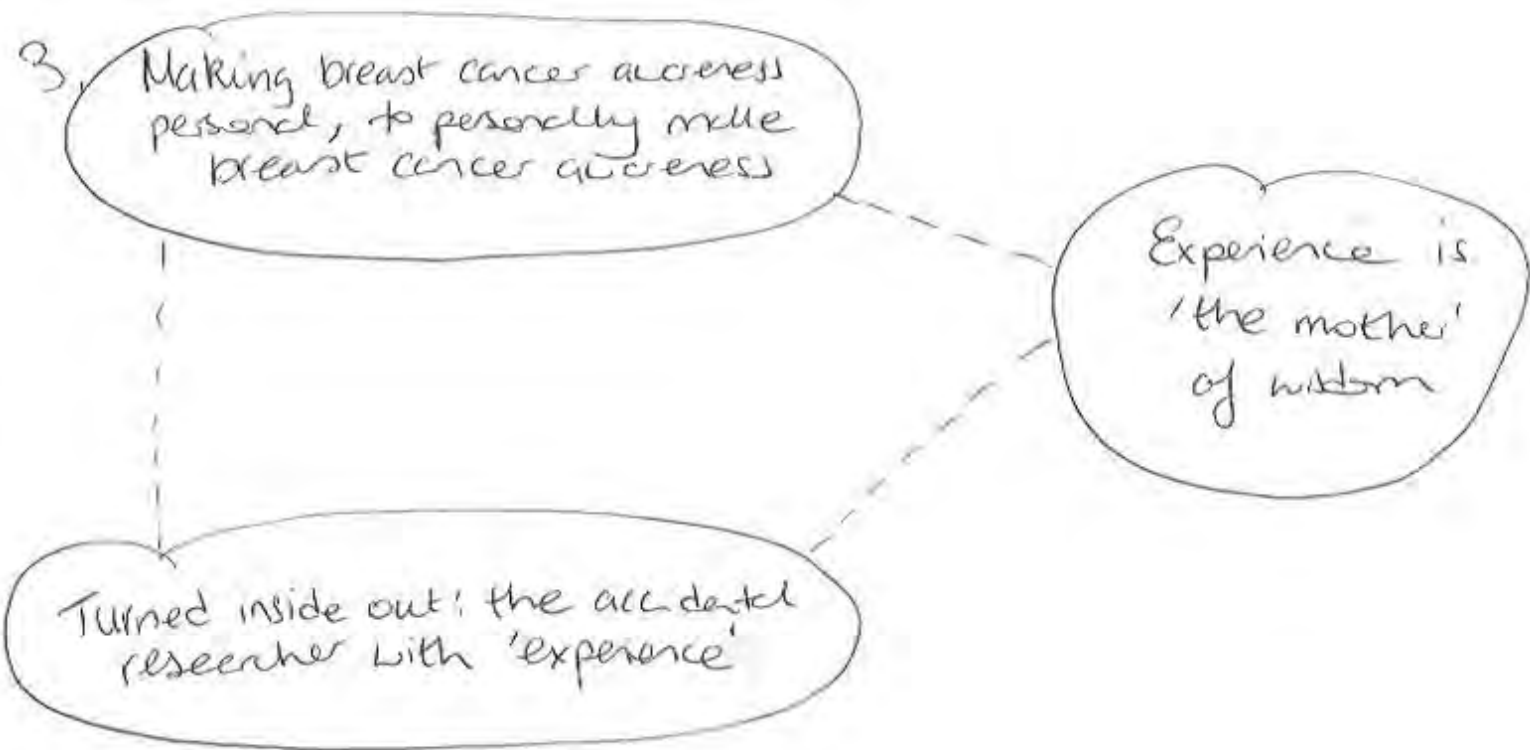 3,
Making breast cancer awareness
personal, to personally make
breast cancer awareness
Experience is
'the mother'
of wisdom
Turned inside out: the accidental
researcher with 'experience'